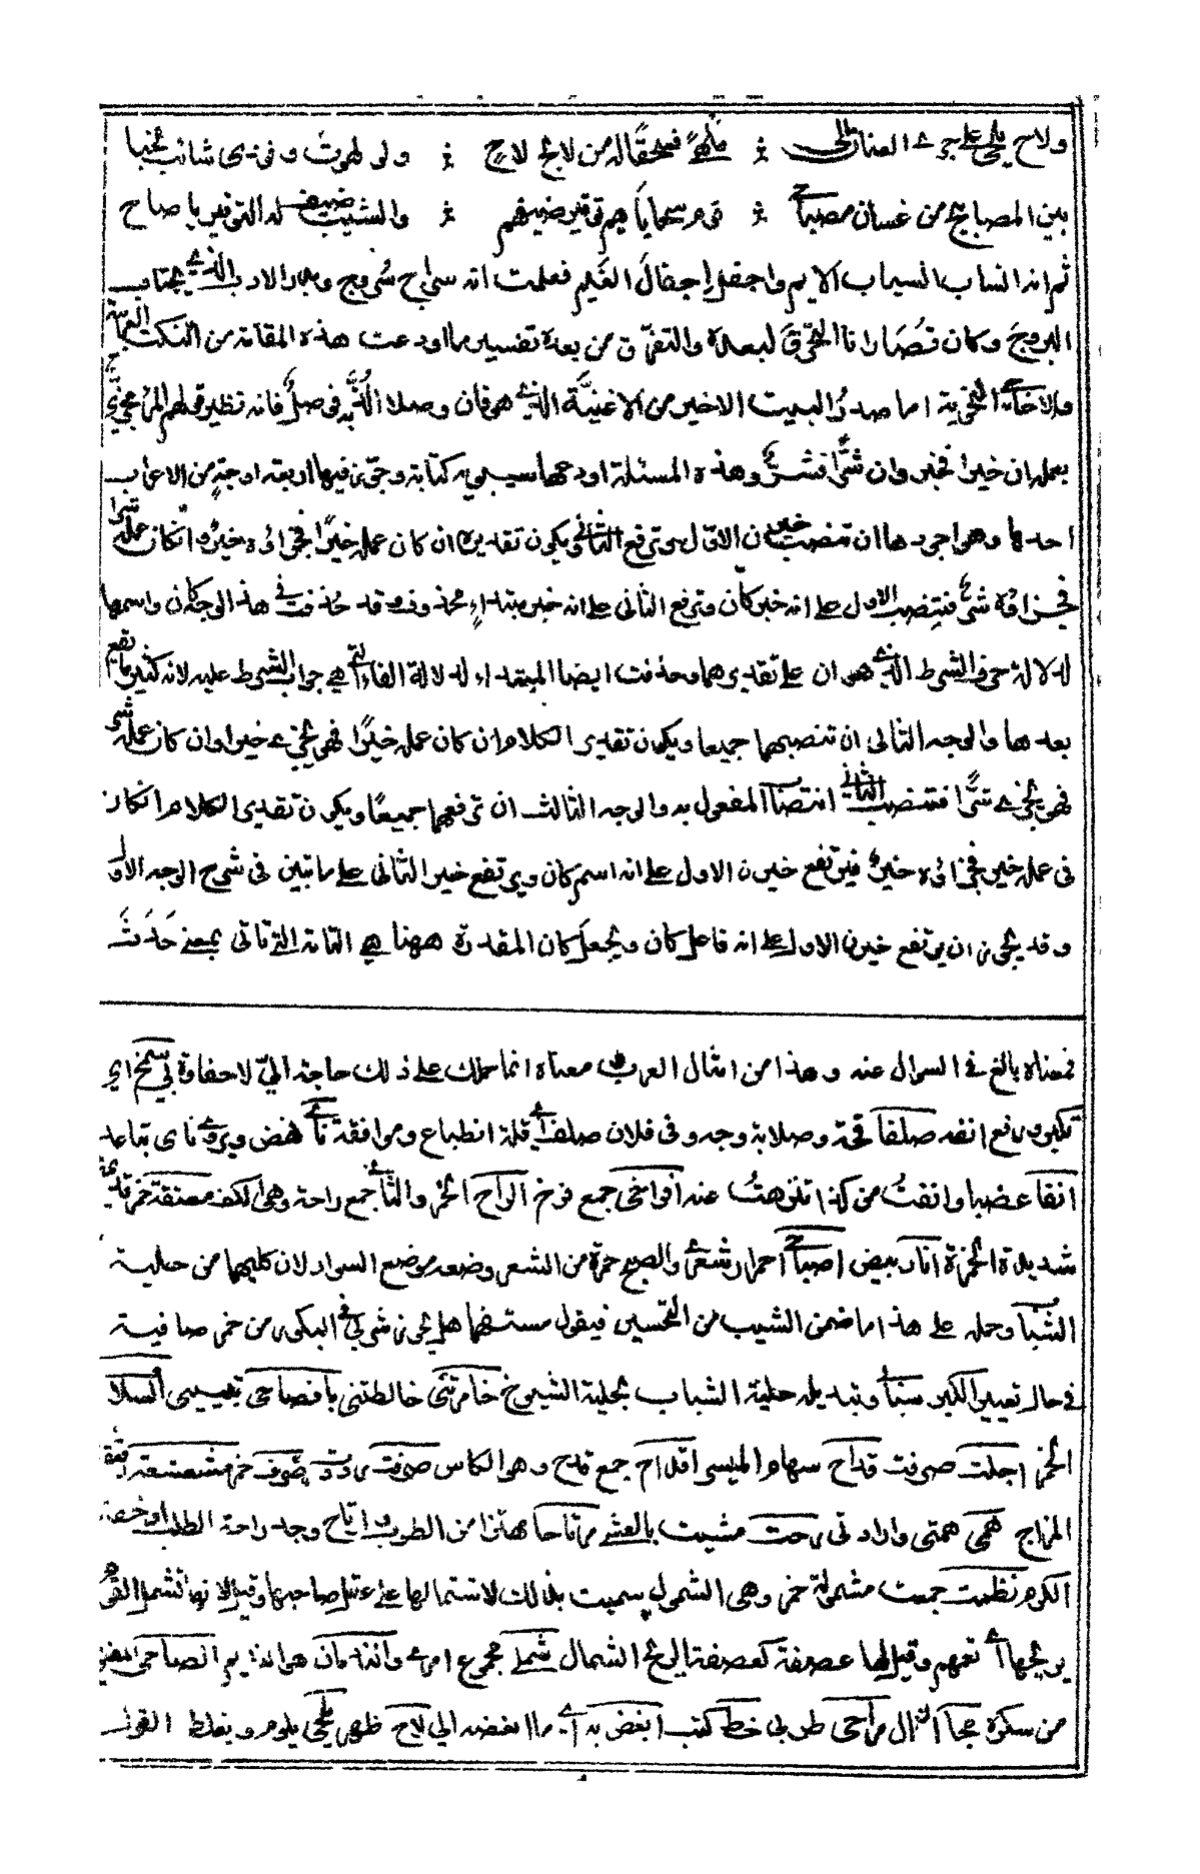 ولاح يلحى على جري العنان إلى ؞ ملهًى فسحقا له من لائح لاح ؞ ولو لهوت وفودى شائب لخبا
بين المصابيح من غسان مصباحى ؞ قوم سجاياهم توقير ضيفهم ؞ والشيب ضيف له التوقير يا صاح
ثم انه انساب انسياب الايم واجفل إجفال الغيم فعلمت انه سراج سروج وبدر الادب الذي يجتاب
البروج وكان قصارانا التحرق لبعده والتفرق من بعده تفسير ما اودعت هذه المقامة من النكت العربية
والاحاجي النحوية اما صدر البيت الاخير من الاغنية الذي هو فان وصلا الذ به فوصل فانه نظير قولهم المرء مجزي
بعمله ان خيرا فخير وان شرا فشر وهذه المسئلة اودعها سيبويه كتابه وجوز فيها اربعة اوجه من الاعراب
احدها وهو اجودها ان تنصب خير ن الاول وترفع الثاني ويكون تقديره ان كان عمله خيرًا فجزاؤه خير وان كان عمله شرا
فجزاؤه شر فتنصب الاول على انه خبر كان وترفع الثانى على انه خبر مبتداءٍ محذوف وقد حذفت في هذا الوجه كان واسمها
لدلالة حرف الشرط الذي هو ان على تقديرهما وحذفت ايضا المبتداء لدلالة الفاء التي هي جواب الشرط عليه لانه كثيرا ما يقع
بعدها والوجه الثانى ان تنصبهما جميعا ويكون تقدير الكلام ان كان عمله خيرًا فهو يجزي خيرا وان كان عمله شرا
فهو يجزي شرًّا فتنتصب الثاني انتصاب المفعول به والوجه الثالث ان ترفعهما جميعًا ويكون تقدير الكلام ان كان
فى عمله خير فجزاؤه خير فيرتفع خيرن الاول على انه اسم كان ويرتفع خير الثانى على ما تبين فى شرح الوجه الاول
وقد يجوز ان يرتفع خيرن الاول على انه فاعل كان ويجعل كان المقدرة ههنا هي التامة التي تاتى بمعنى حَدَثَ
فمعناه بالغ في السوال عنه وهذا من امثال العرب معناه انما حملك على ذلك حاجة اليّ لا حفاوة بي شمخ اي
تكبر ورفع انفه صلفا قحة وصلابة وجه وفى فلان صلف اي قلة انطباع وموافقة ناء نهض ويروي ناى تباعد
انفا غضبا وانفتُ من كذا تنزهتُ عنه أفواخى جمع فوخ الراح الخمر والثانى جمع راحة وهى الكف معتقة خمر قديمة
شديدة الحمرة انار بيض اصباحي احمرار شعري والصبح حمرة من الشعر وضعه موضع السواد لان كليهما من حلية
الشباب وحمله على هذا ما ضمن الشيب من التحسين فيقول مستفهما هل يجوز شربي في البكور من خمر صافية
في حال تعيير الكبر سنا وتبديله حلية الشباب بحلية الشيوخ خامرتنى خالطتنى بافصاحى تبيينى السلا
الخمر اجلت صرفت قداح سهام الميسر اقداح جمع قدح وهو الكاس صرفت رددت صرف خمر مشعشعة رقيقة
المزاج همى همتى وارادتى رحت مشيت بالعشي مرتاحا هتزا من الطرب وارتاح وجد راحة الطلب او خصة
الكرم نظمت جمعت مشمولة خمر وهى الشمول سميت بذلك لاشتمالها على عقل صاحبها وقيل لانها تشمل القوم
بريحها اي تعمهم وقيل لها عصفة كعصفة الريح الشمال شملي مجموع امري والندمان هو النديم الصاحى المفيق
من سكره محا ازال مراحى طربى خط كتب ابغض به اي ما ابغضه الي لاح ظهر يلحى يلوم ويغلظ القول